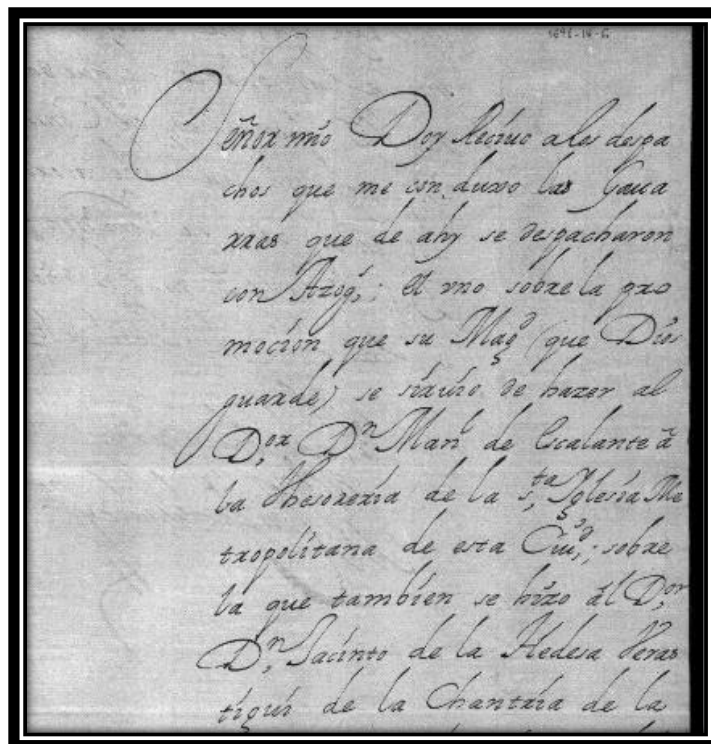 1696-IV-6
Señor mio Doy Reciuo a los despa
chos que me conduxo las Gaua
rras que de ahy se despacharon
con Azog.; El vno sobre la pro
mocion que su Mag.d (que Dios
guarde) se siruio de hazer al
D.or D.n Man.l de Escalante â
la Thesoreria de la s.ta Iglesia Me
tropolitana de esta Ciu.d; sobre
la que tambien se hizo âl D.or
D.n Jacinto de la Hedesa Veras
tigui de la Chantria de la